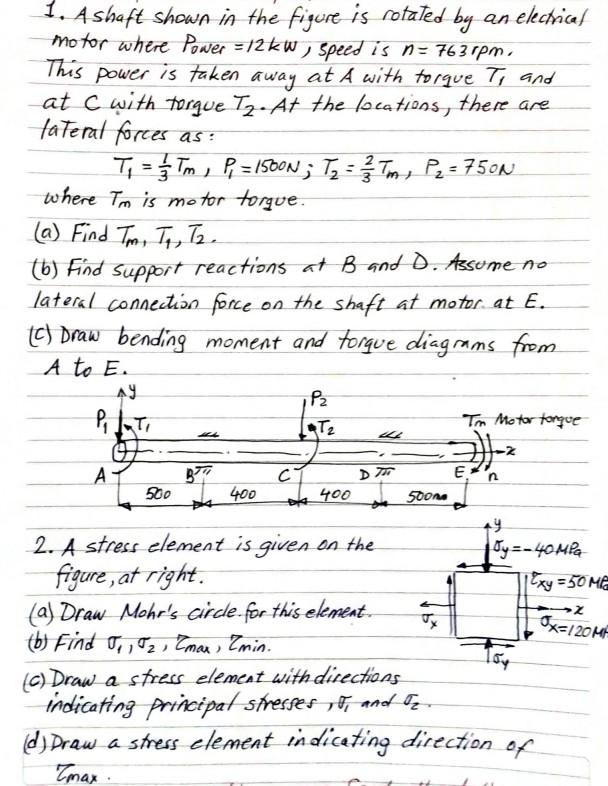 1. A shaft shown in the figure is rotated by an electrical
motor where Power = 12 kW, speed is n = 763 rpm.
This power is taken away at A with torque T₁ and
at C with torque T₂. At the locations, there are
lateral forces as:
T₁ = 1/3 Tm, P₁ = 1500N; T₂ = 2/3 Tm, P₂ = 750N
where Tm is motor torque.
(a) Find Tm, T₁, T₂.
(b) Find support reactions at B and D. Assume no
lateral connection force on the shaft at motor at E.
(c) Draw bending moment and torque diagrams from
A to E.
y
P₁ T₁ P₂ T₂ Tm Motor torque
x
A B C D E n
500 400 400 500mm
2. A stress element is given on the
figure, at right.
(a) Draw Mohr's circle for this element.
(b) Find σ₁, σ₂, τmax, τmin.
(c) Draw a stress element with directions
indicating principal stresses, σ₁ and σ₂.
(d) Draw a stress element indicating direction of
τmax.
y
σy = -40 MPa
τxy = 50 MPa
x
σx σx = 120 MPa
σy